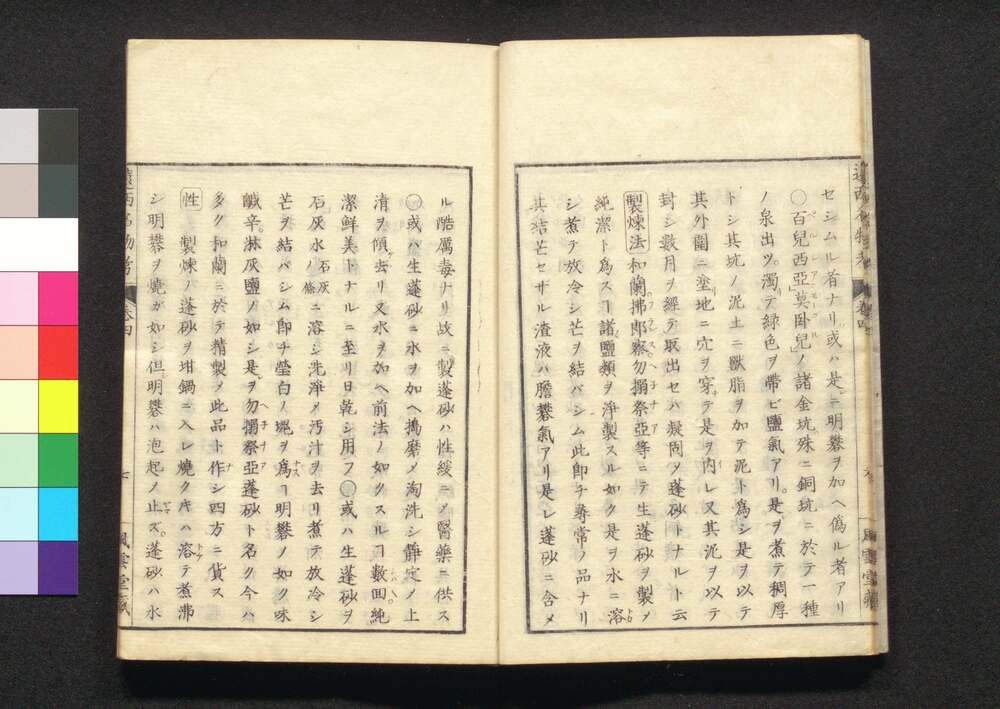 セシムル者ナリ或ハ是ニ明礬ヲ加ヘ偽ル者アリ
〇百兒西亞莫臥兒ノ諸金坑殊ニ銅坑ニ於テ一種
ノ泉出ツ濁テ緑色ヲ帶ビ鹽氣アリ是ヲ煮テ稠厚
トシ其坑ノ泥土ニ獸脂ヲ加テ泥ト爲シ是ヲ以テ
其外圍ニ塗地ニ穴ヲ穿テ是ヲ内レ又其泥ヲ以テ
封シ數月ヲ經テ取出セハ凝固メ蓬砂トナルト云
製煉法 和蘭拂郎察勿搦祭亞等ニテ生蓬砂ヲ製メ
純潔ト爲スヿ諸鹽類ヲ淨製スル如ク是ヲ水ニ溶
シ煮テ放冷シ芒ヲ結バシム此即チ尋常ノ品ナリ
其結芒セザル渣液ハ膽礬氣アリ是レ蓬砂ニ含メ
遠西名物考 卷四
風雲堂藏
ル酷厲毒ナリ故ニ製蓬砂ハ性緩ニメ醫藥ニ供ス
〇或ハ生蓬砂ニ水ヲ加ヘ擣磨メ淘洗シ靜定ノ上
清ヲ傾ケ去リ又水ヲ加ヘ前法ノ如クスルヿ數回純
潔鮮美トナルニ至リ日乾シ用フ〇或ハ生蓬砂ヲ
石灰水石灰ノ條ニ溶シ洗淨メ汚汁ヲ去リ煮テ放冷シ
芒ヲ結バシム即チ瑩白ノ塊ヲ爲スヿ明礬ノ如ク味
鹹辛淋灰鹽ノ如シ是ヲ勿搦祭亞蓬砂ト名ク今ハ
多ク和蘭ニ於テ精製メ此品ト作シ四方ニ貨ス
性 製煉ノ蓬砂ヲ坩鍋ニ入レ燒クキハ溶テ煮沸
シ明礬ヲ燒ガ如シ但明礬ハ泡起メ止ズ蓬砂ハ水
遠西名物考 卷四
風雲堂藏